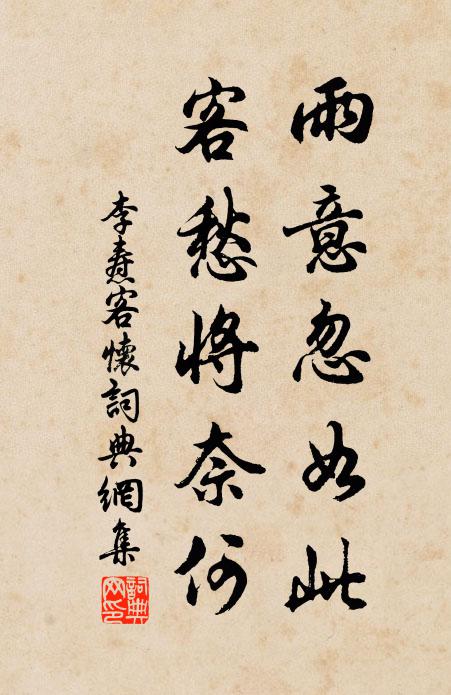 雨意忽如此
客愁將奈何
李燾客懷詞典網集
詞典網印